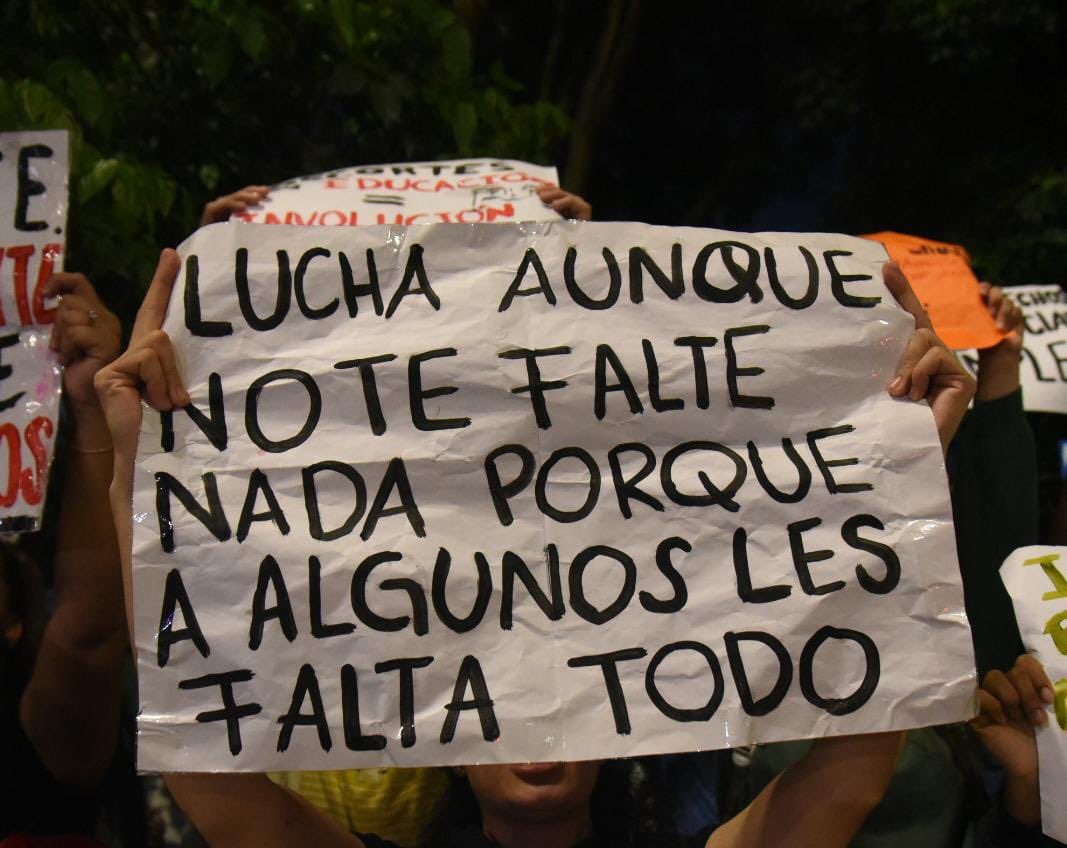 E.
EDUCACIÓN
=
INVOLUCIÓN
LUCHA AUNQUE
NO TE FALTE
NADA PORQUE
A ALGUNOS LES
FALTA TODO